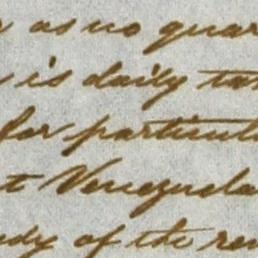 as no quar
is daily ta
for particul
t Venezuela
dy of the re